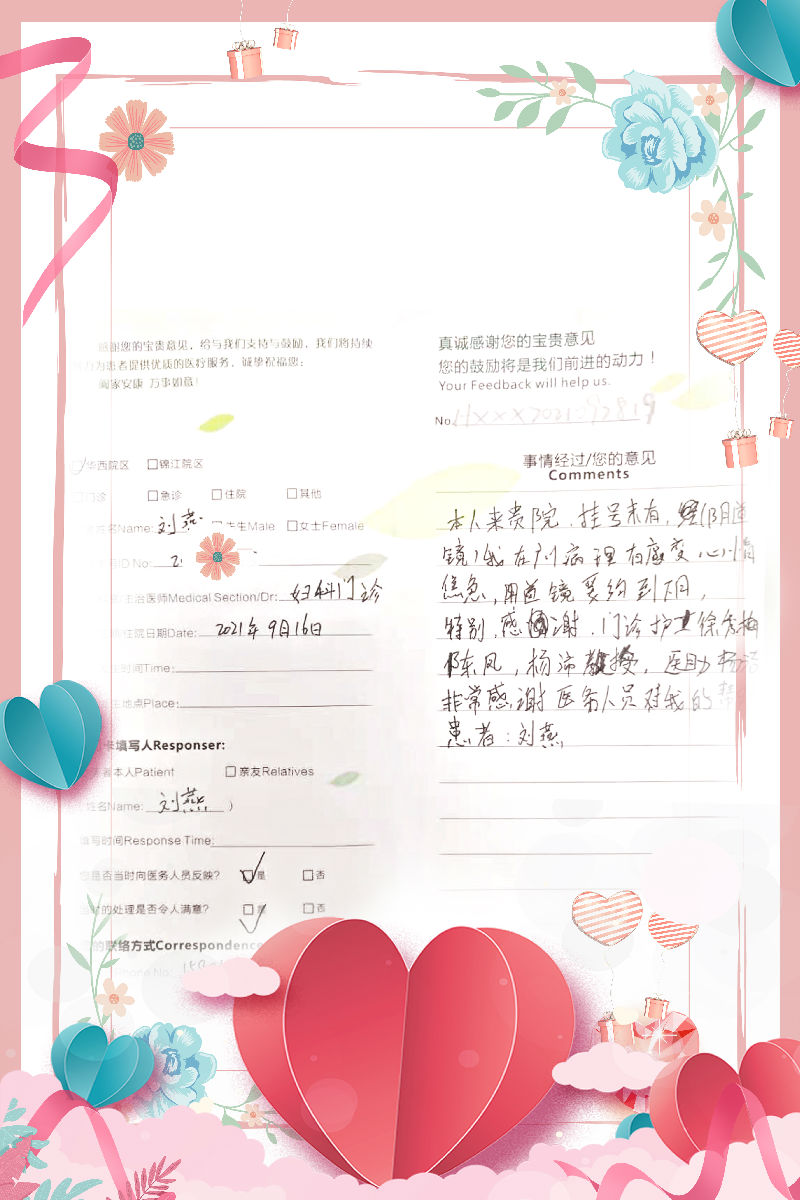 感谢您的宝贵意见，给与我们支持与鼓励，我们将持续
力为患者提供优质的医疗服务，诚挚祝福您：
阖家安康 万事如意！
华西院区 锦江院区
门诊 急诊 住院 其他
姓名Name: 刘燕 先生Male 女士Female
号ID No: 2
主治医师Medical Section/Dr: 妇科门诊
住院日期Date: 2021年9月16日
生时间Time:
生地点Place:
卡填写人Responser:
者本人Patient 亲友Relatives
姓名Name: 刘燕 )
填写时间Response Time:
您是否当时向医务人员反映? 是 否
当时的处理是否令人满意? 是 否
的联络方式Correspondence
Phone No: 15
真诚感谢您的宝贵意见
您的鼓励将是我们前进的动力！
Your Feedback will help us.
No. HXXX2021092819
事情经过/您的意见
Comments
本人来贵院，挂号未有，阴道
镜，我在 病理有癌变，心情
焦急，阴道镜要约到下月，
特别，感谢，门诊护士徐秀梅
陈凤，杨沛教授，医助杨洁
非常感谢医务人员对我的帮
患者：刘燕